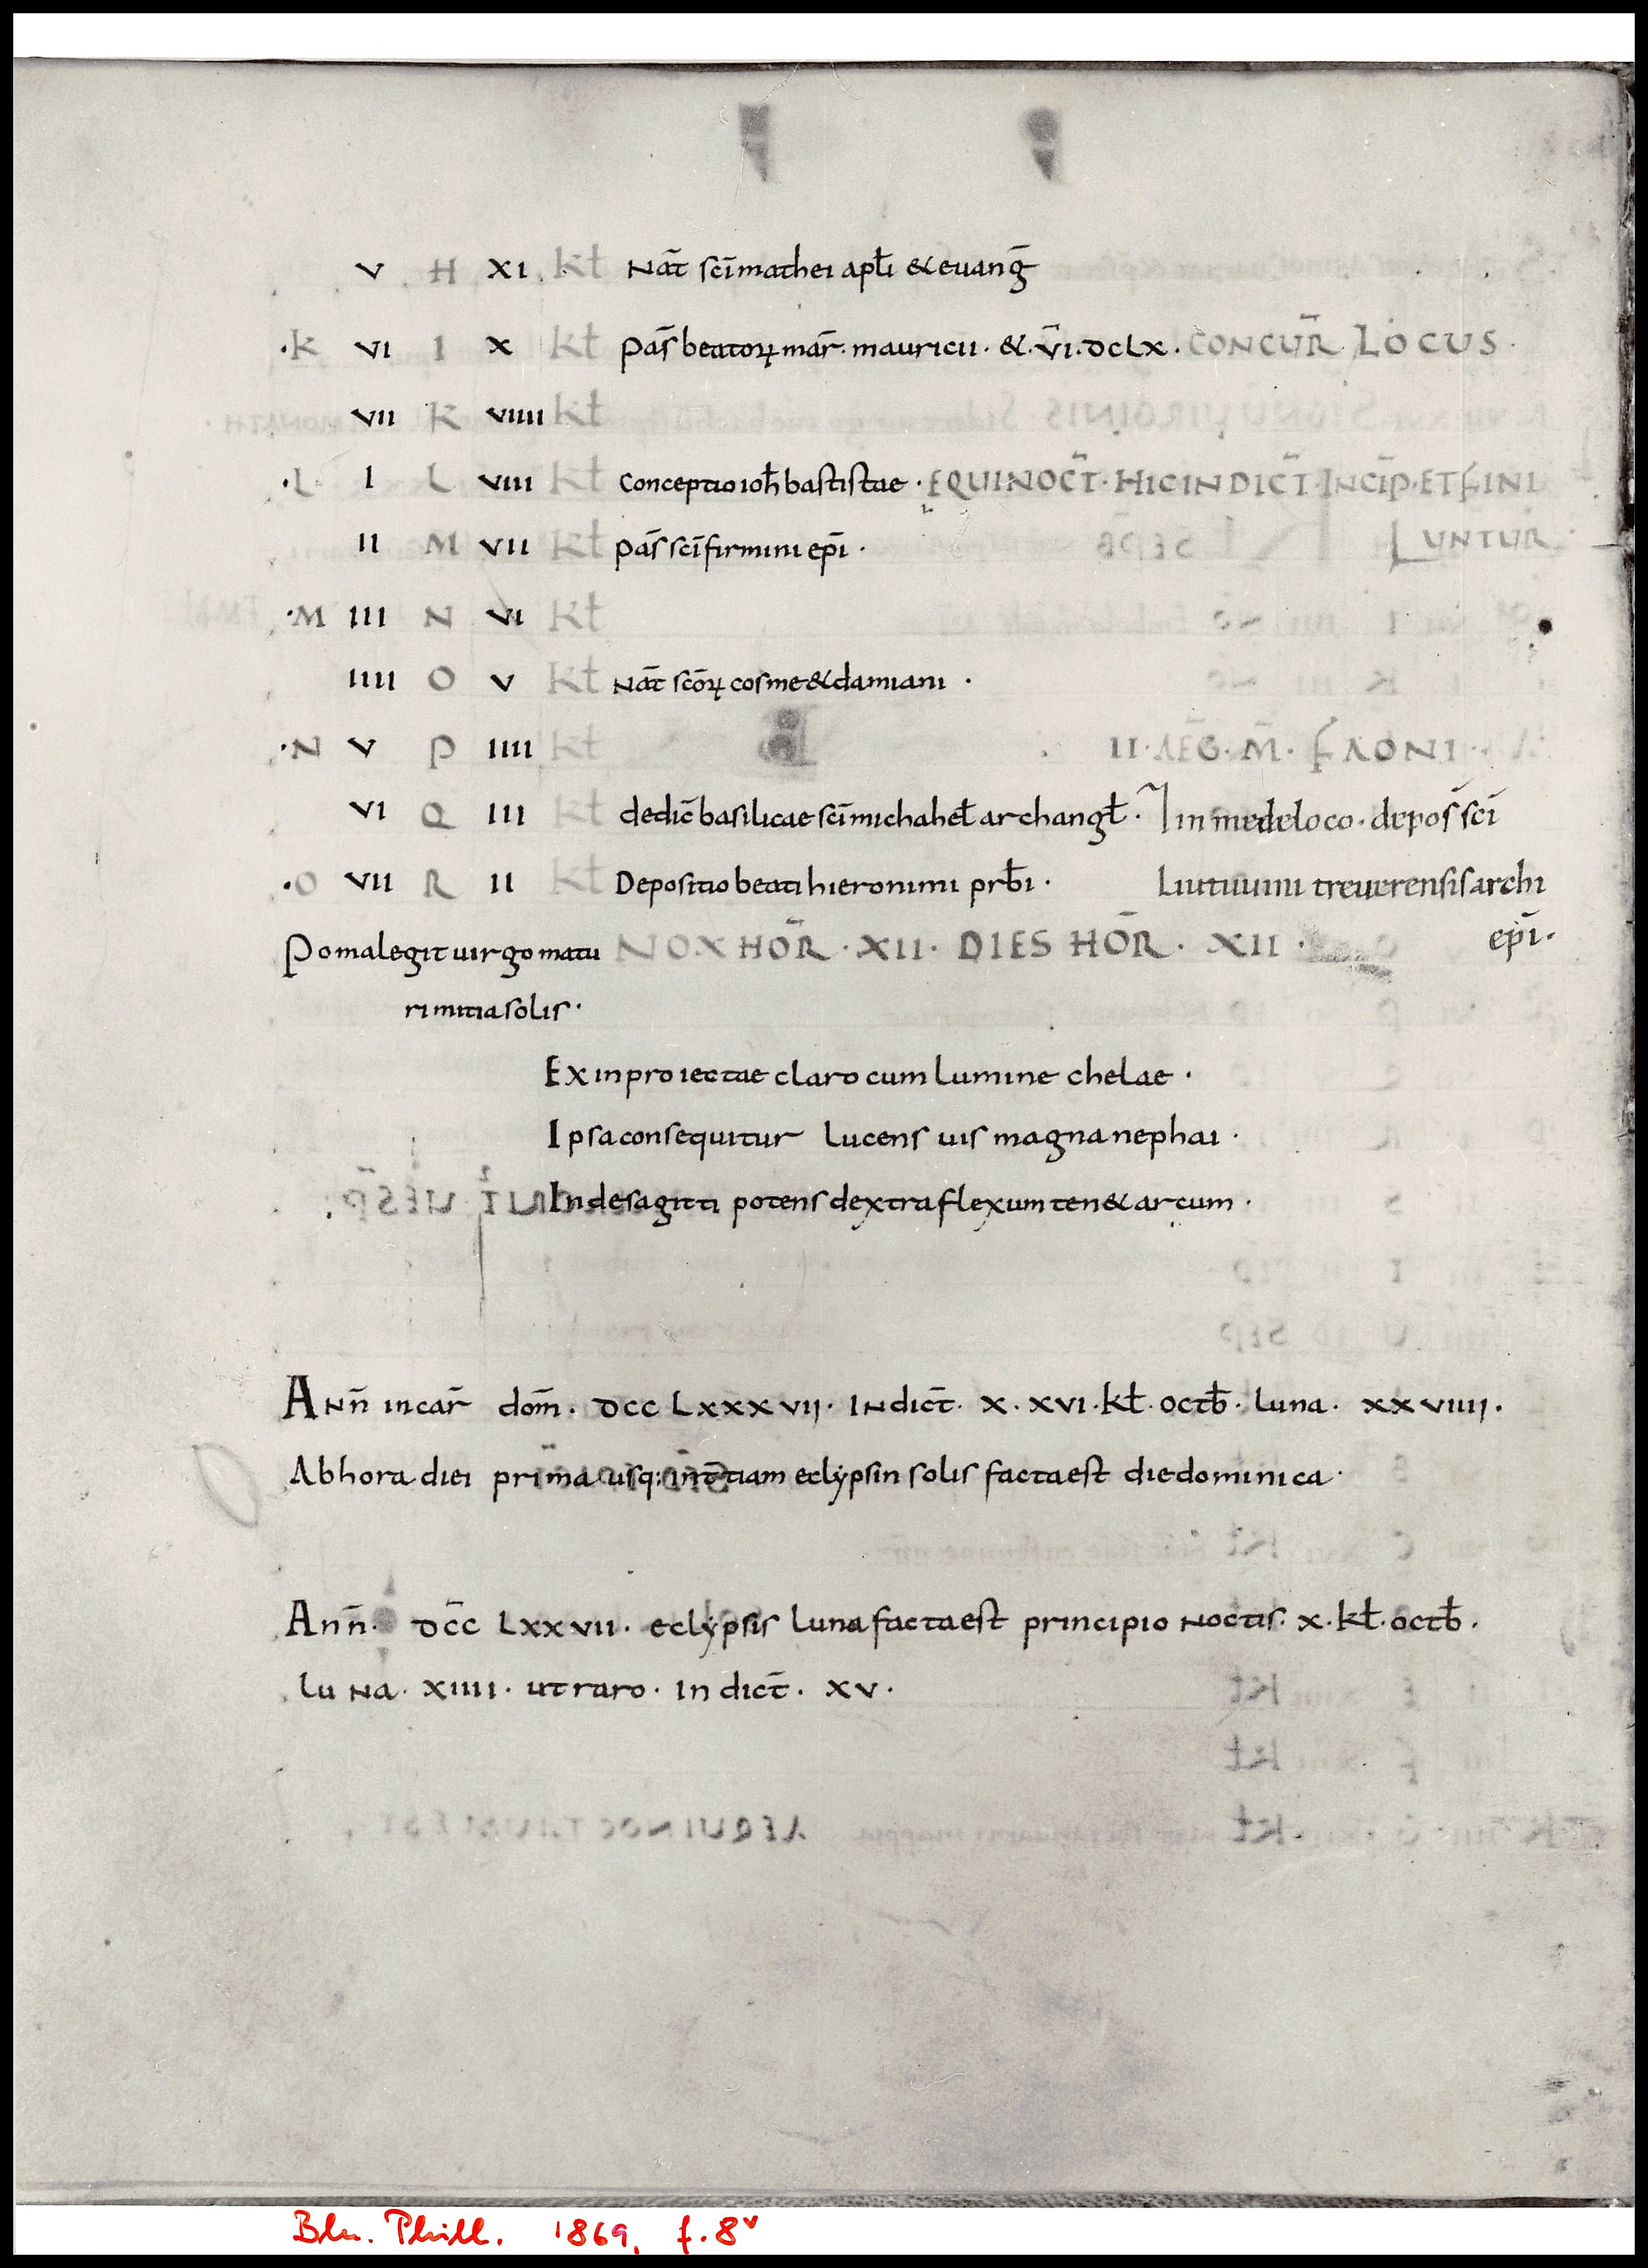 v H xi kł Nat̄ sci̅ mathei apłi & euang̅
·K vi I x kł pas̄ beatoꝝ mar̄ · mauricii · & · v̅i · dclx · CONCUR̄ LOCUS ·
vii K viiii kł
·L I L viii kł Conceptio ioh̄ bastistae · EQUINOCT̄ · HIC INDICT̄ INCIP̄ · ET FINI
ii M vii kł pas̄ sci̅ firmini epi̅ · UNTUR
·M iii N vi kł
iiii O v kł Nat̄ sco̅ꝝ cosme & damiani ·
·N v P iiii kł II · AEG̅ · M̅ · FAONI ·
vi Q iii kł dedic̄ basilicae sci̅ michaheł archangł · In medeloco · depos̄ sci̅
·O vii R ii kł Depositio beati hieronimi prƀi · Liutuuini treuerensis archi
Poma legit uirgo matu NOX HOR̄ · XII · DIES HOR̄ · XII · epi̅ ·
ri mitia solis ·
Exin proiectae claro cum lumine chelae ·
Ipsa consequitur lucens uis magna nephai ·
Inde sagitti potens dextra flexum ten& arcum ·
Ann̄ incar̄ dom̄ · dcc Lxxxvii · Indict̄ · x · xvi · kł · octƀ · luna · xxviiii ·
Ab hora diei prima usq: in t̄tiam eclypsin solis facta est die dominica ·
Ann̄ · dc̄c Lxxvii · eclypsis Luna facta est principio Noctis · x · kł · octƀ ·
luna · xiiii · ut raro · indict̄ · xv ·
Bln. Phill. 1869, f. 8v